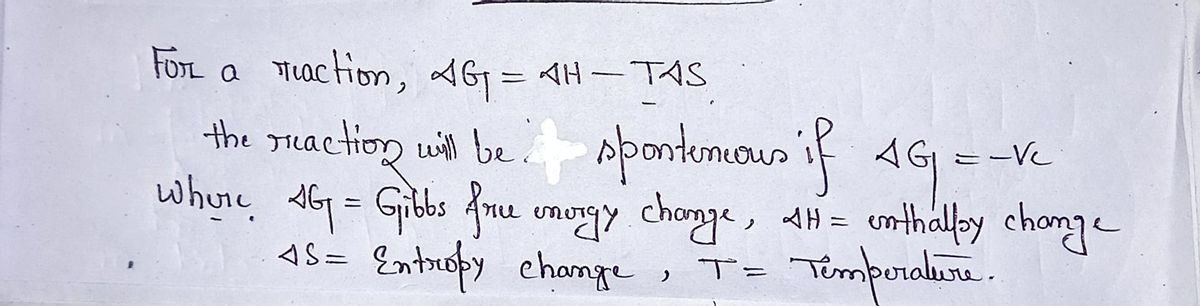 For a reaction, ΔG = ΔH – TΔS.
the reaction will be sponteneous if ΔG = -ve
Where, ΔG = Gibbs free energy change, ΔH = enthalpy change
ΔS = Entropy change, T = Temperature.